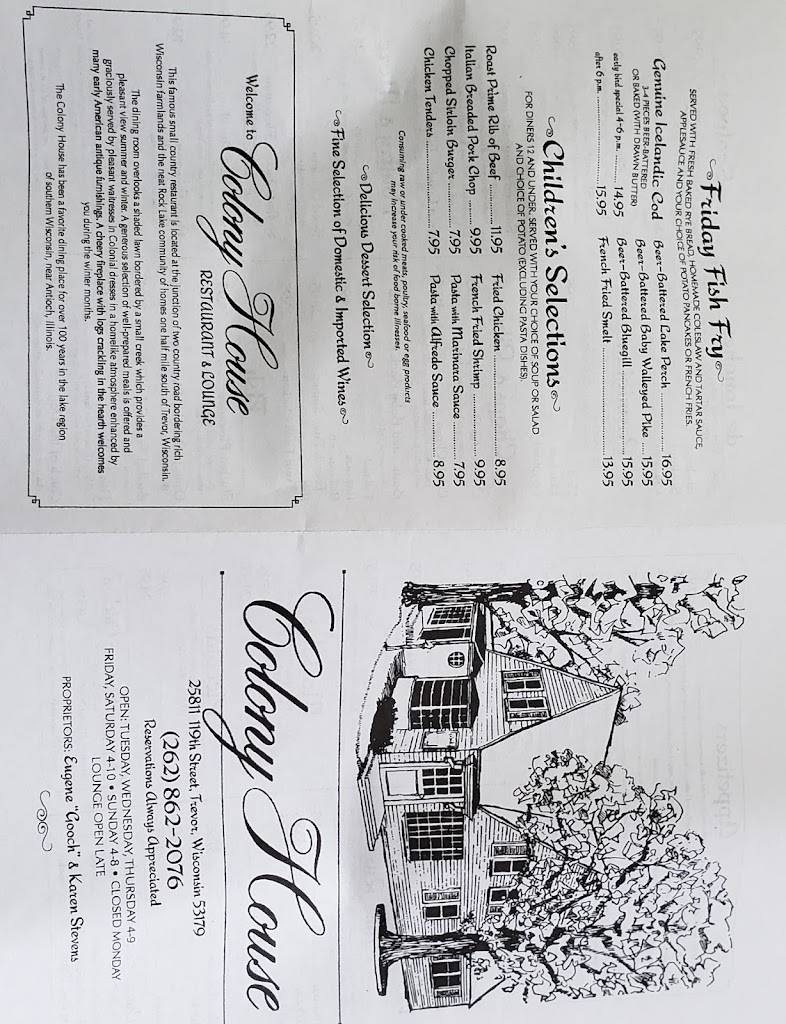 Friday Fish Fry
SERVED WITH FRESH BAKED RYE BREAD, HOMEMADE COLESLAW AND TARTAR SAUCE,
APPLESAUCE AND YOUR CHOICE OF POTATO PANCAKES OR FRENCH FRIES.
Genuine Icelandic Cod
3-4 PIECES BEER-BATTERED
OR BAKED (WITH DRAWN BUTTER)
early bird special 4-6 p.m. .......... 14.95
after 6 p.m. .......... 15.95
Beer-Battered Lake Perch .......... 16.95
Beer-Battered Baby Walleyed Pike .... 15.95
Beer-Battered Bluegill .......... 15.95
French Fried Smelt .......... 13.95
Children's Selections
FOR DINERS 12 AND UNDER. SERVED WITH YOUR CHOICE OF SOUP OR SALAD
AND CHOICE OF POTATO (EXCLUDING PASTA DISHES).
Roast Prime Rib of Beef .......... 11.95
Italian Breaded Pork Chop .......... 9.95
Chopped Sirloin Burger .......... 7.95
Chicken Tenders .......... 7.95
Fried Chicken .......... 8.95
French Fried Shrimp .......... 9.95
Pasta with Marinara Sauce .......... 7.95
Pasta with Alfredo Sauce .......... 8.95
Consuming raw or under cooked meats, poultry, seafood or egg products
may increase your risk of food borne illnesses.
Delicious Dessert Selection
Fine Selection of Domestic & Imported Wines
Welcome to
Colony House
RESTAURANT & LOUNGE
This famous small country restaurant is located at the junction of two country road bordering rich
Wisconsin farmlands and the neat Rock Lake community of homes one half mile south of Trevor, Wisconsin.
The dining room overlooks a shaded lawn bordered by a small creek which provides a
pleasant view summer and winter. A generous selection of well-prepared meals is offered and
graciously served by pleasant waitresses in Colonial dresses in a homelike atmosphere enhanced by
many early American antique furnishings. A cheery fireplace with logs crackling in the hearth welcomes
you during the winter months.
The Colony House has been a favorite dining place for over 100 years in the lake region
of southern Wisconsin, near Antioch, Illinois.
Colony House
25811 119th Street, Trevor, Wisconsin 53179
(262) 862-2076
Reservations Always Appreciated
OPEN: TUESDAY, WEDNESDAY, THURSDAY 4-9
FRIDAY, SATURDAY 4-10 • SUNDAY 4-8 • CLOSED MONDAY
LOUNGE OPEN LATE
PROPRIETORS: Eugene "Gooch" & Karen Stevens